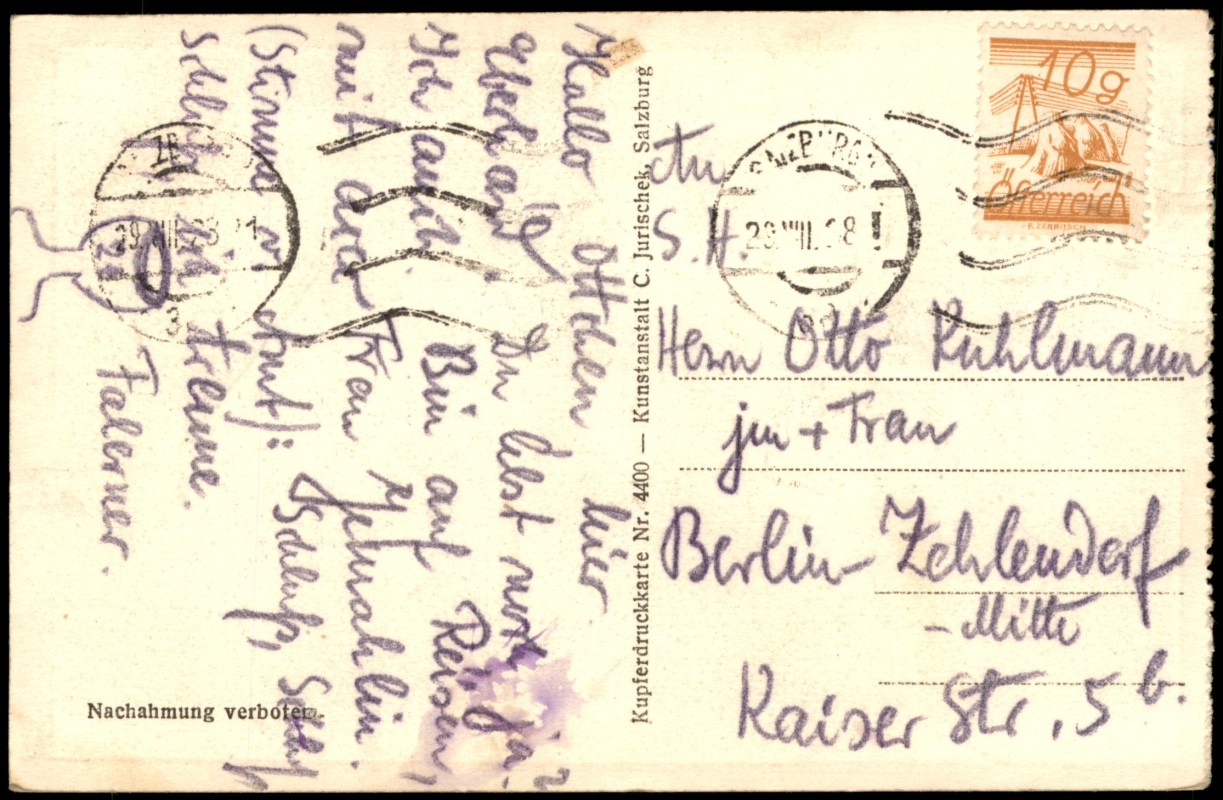 Hallo Ottchen hier
Eberhard. Du lebst noch ja?
Ich auch. Bin auf Reisen,
mit der Frau Gemahlin.
(Stimme v. dort): Schluß, Schluß
schluß ich träume.
Falerner.
Nachahmung verboten.
Kupferdruckkarte Nr. 4400 — Kunstanstalt C. Jurischek, Salzburg
10g
Österreich
SALZBURG
29.VIII.28
29.VIII.28
An
S. H.
Herrn Otto Kuhlmann
jun + Frau
Berlin-Zehlendorf
- Mitte
Kaiser Str. 5 b.